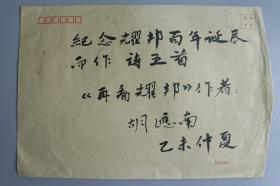 纪念耀邦百年诞辰
而作 诗五首
《再看耀邦》作者：
胡滙南
乙未仲夏